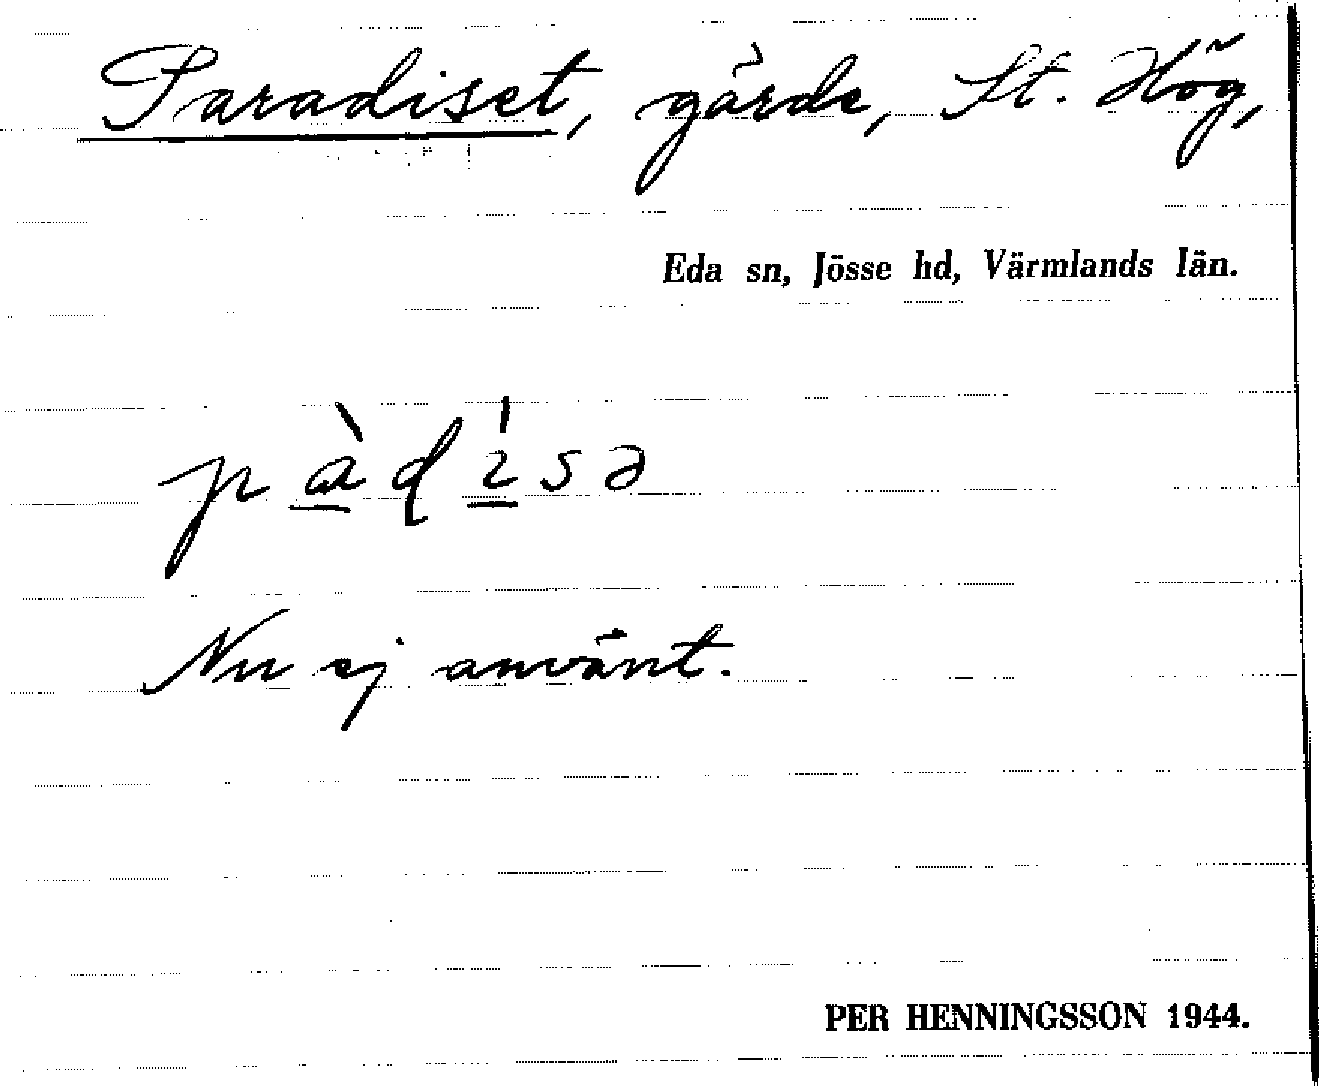 Paradiset, gärde, St. Hög,
Eda sn, Jösse hd, Värmlands län.
pàdísə
Nu ej använt.
PER HENNINGSSON 1944.